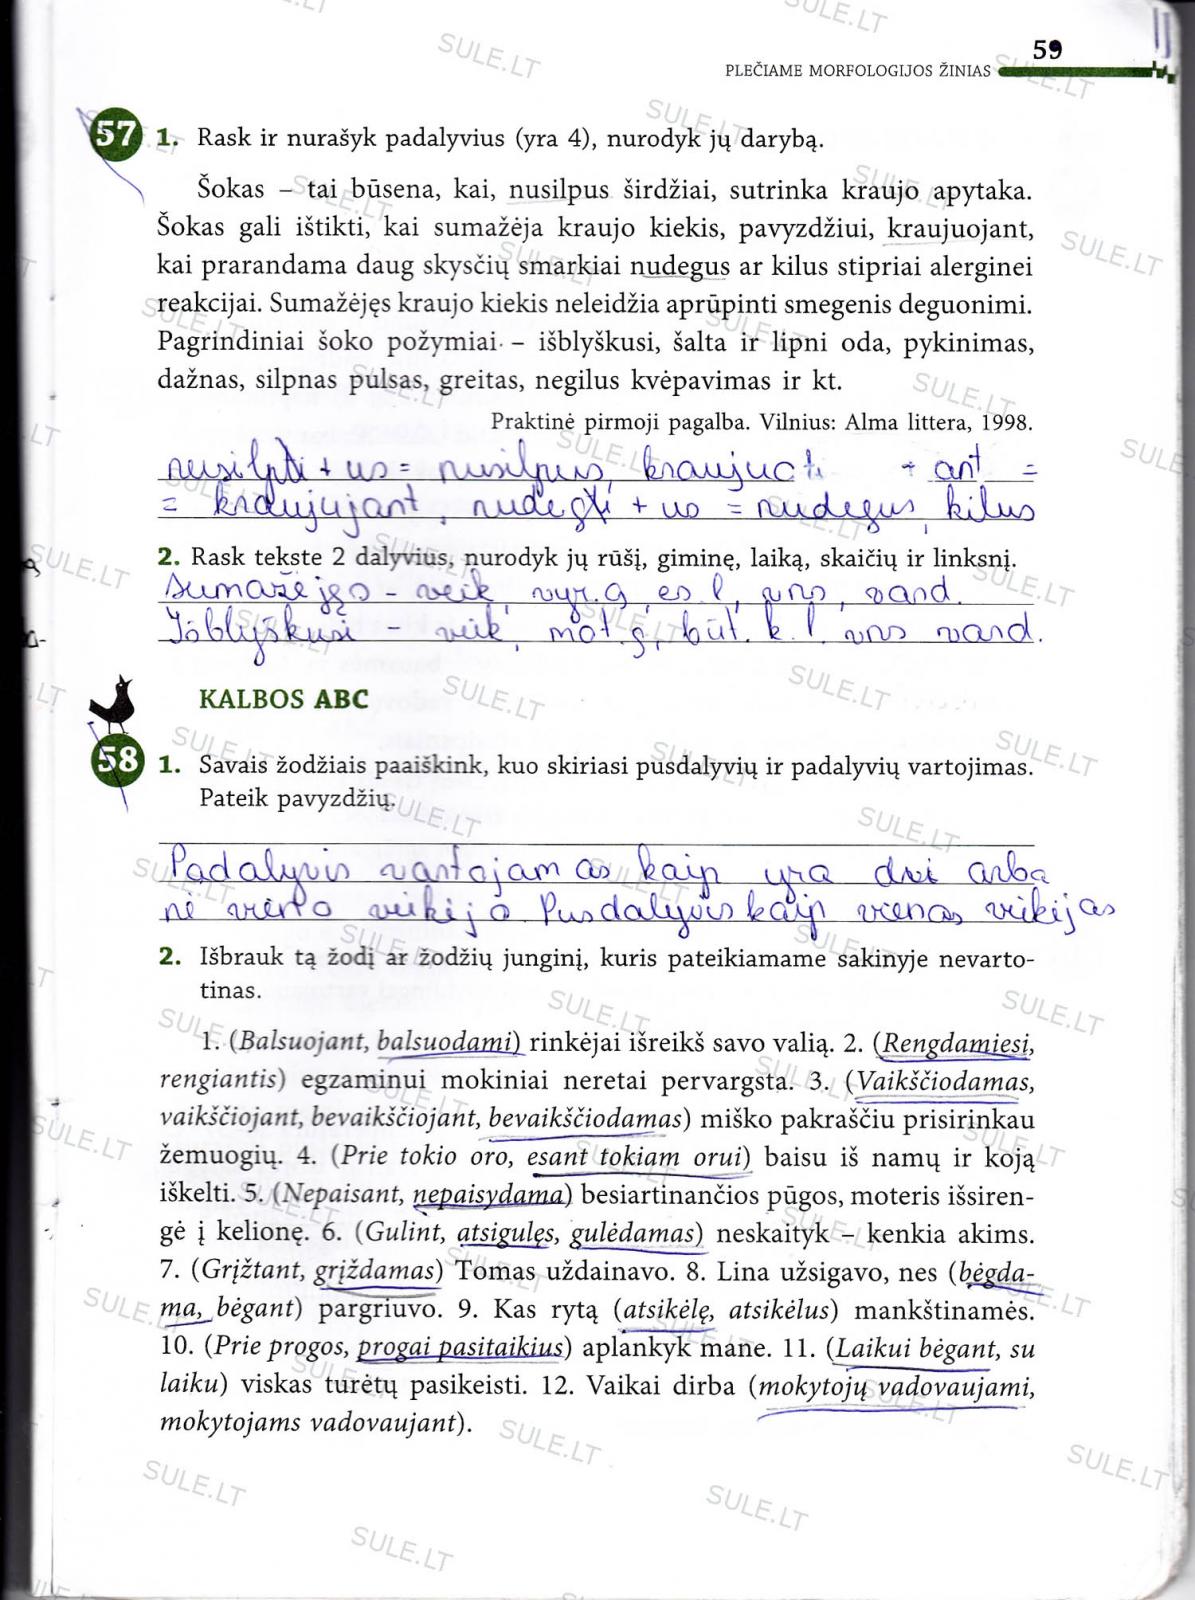 59
PLEČIAME MORFOLOGIJOS ŽINIAS
57 1. Rask ir nurašyk padalyvius (yra 4), nurodyk jų darybą.
Šokas – tai būsena, kai, nusilpus širdžiai, sutrinka kraujo apytaka.
Šokas gali ištikti, kai sumažėja kraujo kiekis, pavyzdžiui, kraujuojant,
kai prarandama daug skysčių smarkiai nudegus ar kilus stipriai alerginei
reakcijai. Sumažėjęs kraujo kiekis neleidžia aprūpinti smegenis deguonimi.
Pagrindiniai šoko požymiai – išblyškusi, šalta ir lipni oda, pykinimas,
dažnas, silpnas pulsas, greitas, negilus kvėpavimas ir kt.
Praktinė pirmoji pagalba. Vilnius: Alma littera, 1998.
nusilpti + us = nusilpus, kraujuoti + ant =
= kraujujant, nudegti + us = nudegus, kilus
2. Rask tekste 2 dalyvius, nurodyk jų rūšį, giminę, laiką, skaičių ir linksnį.
Sumažėjęs - veik, vyr. g, es. l, vns, vard.
Išblyškusi - veik, mot. g, būt. k. l. vns vard.
KALBOS ABC
58 1. Savais žodžiais paaiškink, kuo skiriasi pusdalyvių ir padalyvių vartojimas.
Pateik pavyzdžių.
Padalyvis vartojamas kaip yra dvi arba
ne vieno veikėjo Pusdalyvis kaip vienas veikėjas
2. Išbrauk tą žodį ar žodžių junginį, kuris pateikiamame sakinyje nevarto-
tinas.
1. (Balsuojant, balsuodami) rinkėjai išreikš savo valią. 2. (Rengdamiesi,
rengiantis) egzaminui mokiniai neretai pervargsta. 3. (Vaikščiodamas,
vaikščiojant, bevaikščiojant, bevaikščiodamas) miško pakraščiu prisirinkau
žemuogių. 4. (Prie tokio oro, esant tokiam orui) baisu iš namų ir koją
iškelti. 5. (Nepaisant, nepaisydama) besiartinančios pūgos, moteris išsiren-
gė į kelionę. 6. (Gulint, atsigulęs, gulėdamas) neskaityk – kenkia akims.
7. (Grįžtant, grįždamas) Tomas uždainavo. 8. Lina užsigavo, nes (bėgda-
ma, bėgant) pargriuvo. 9. Kas rytą (atsikėlę, atsikėlus) mankštinamės.
10. (Prie progos, progai pasitaikius) aplankyk mane. 11. (Laikui bėgant, su
laiku) viskas turėtų pasikeisti. 12. Vaikai dirba (mokytojų vadovaujami,
mokytojams vadovaujant).
SULE.LT